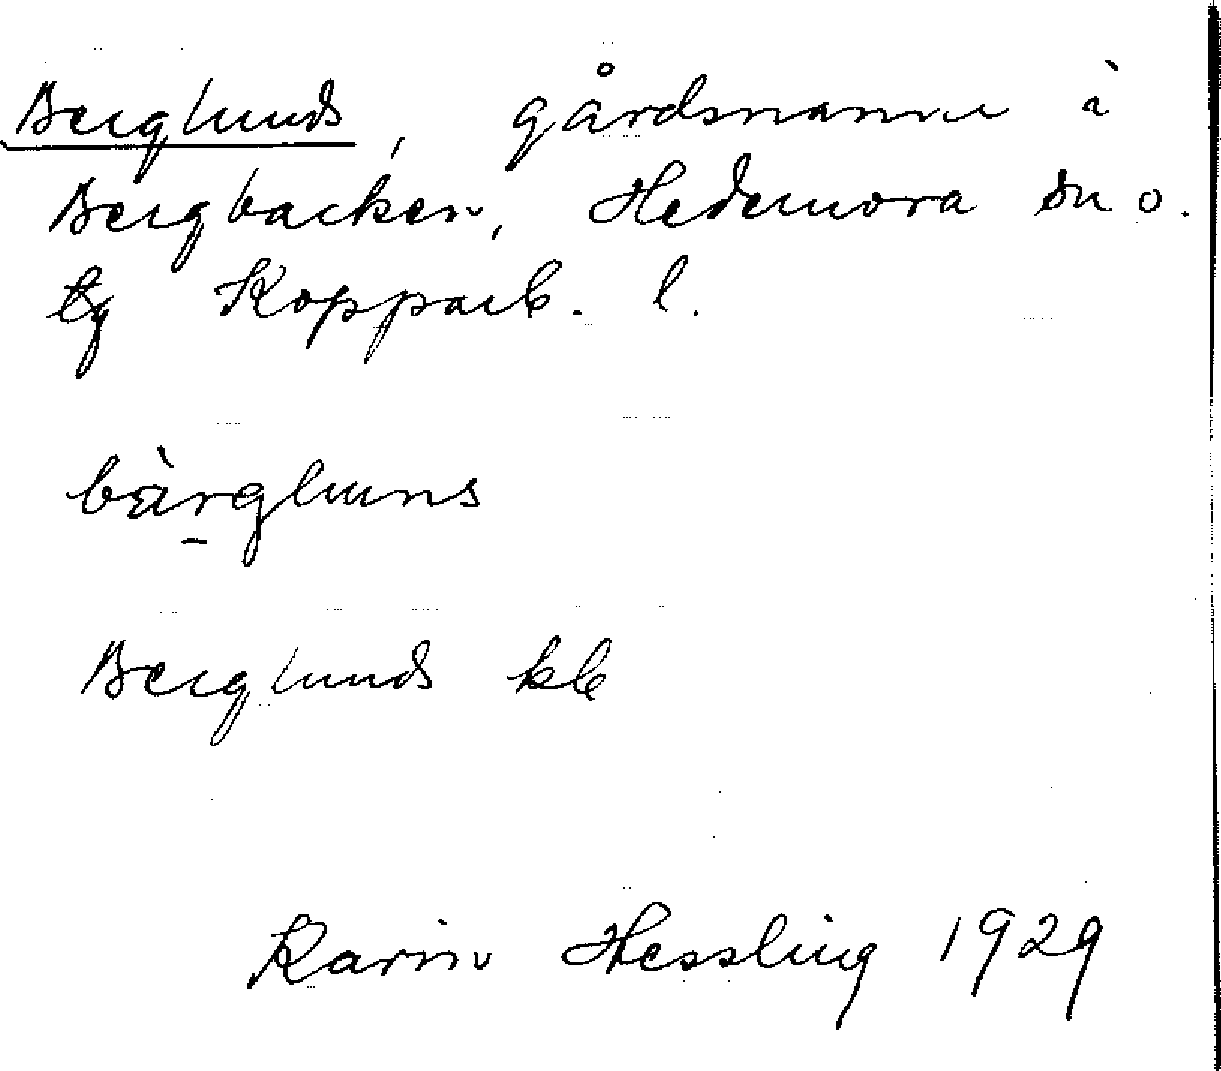 Berglunds, gårdsnamn i
Bergbacken, Hedemora sn o.
tg Kopparb. l.
bàrgluns
Berglunds kb
Karin Hessling 1929